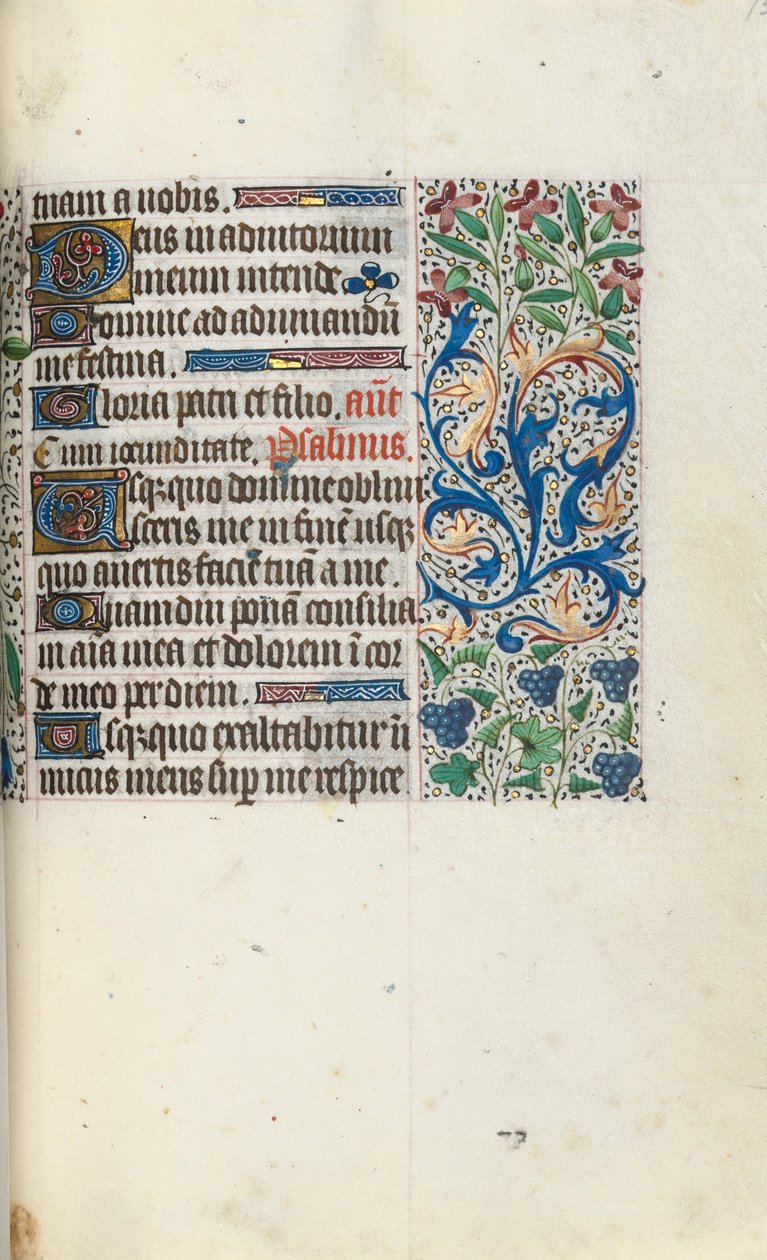 tuam a nobis.
Deus in adiutorium
meum intende
Domine ad adiuuandũ
me festina.
Gloria patri et filio. añt
Cum iocunditate. Psalmus.
Usqꝫquo domine obliui
sceris me in finẽ usqꝫ
quo auertis faciẽ tuã a me.
Quamdiu ponã consilia
in aĩa mea et dolorem ĩ cor
de meo per diem.
Usqꝫquo exaltabitur ĩi
micus meus suꝑ me respice